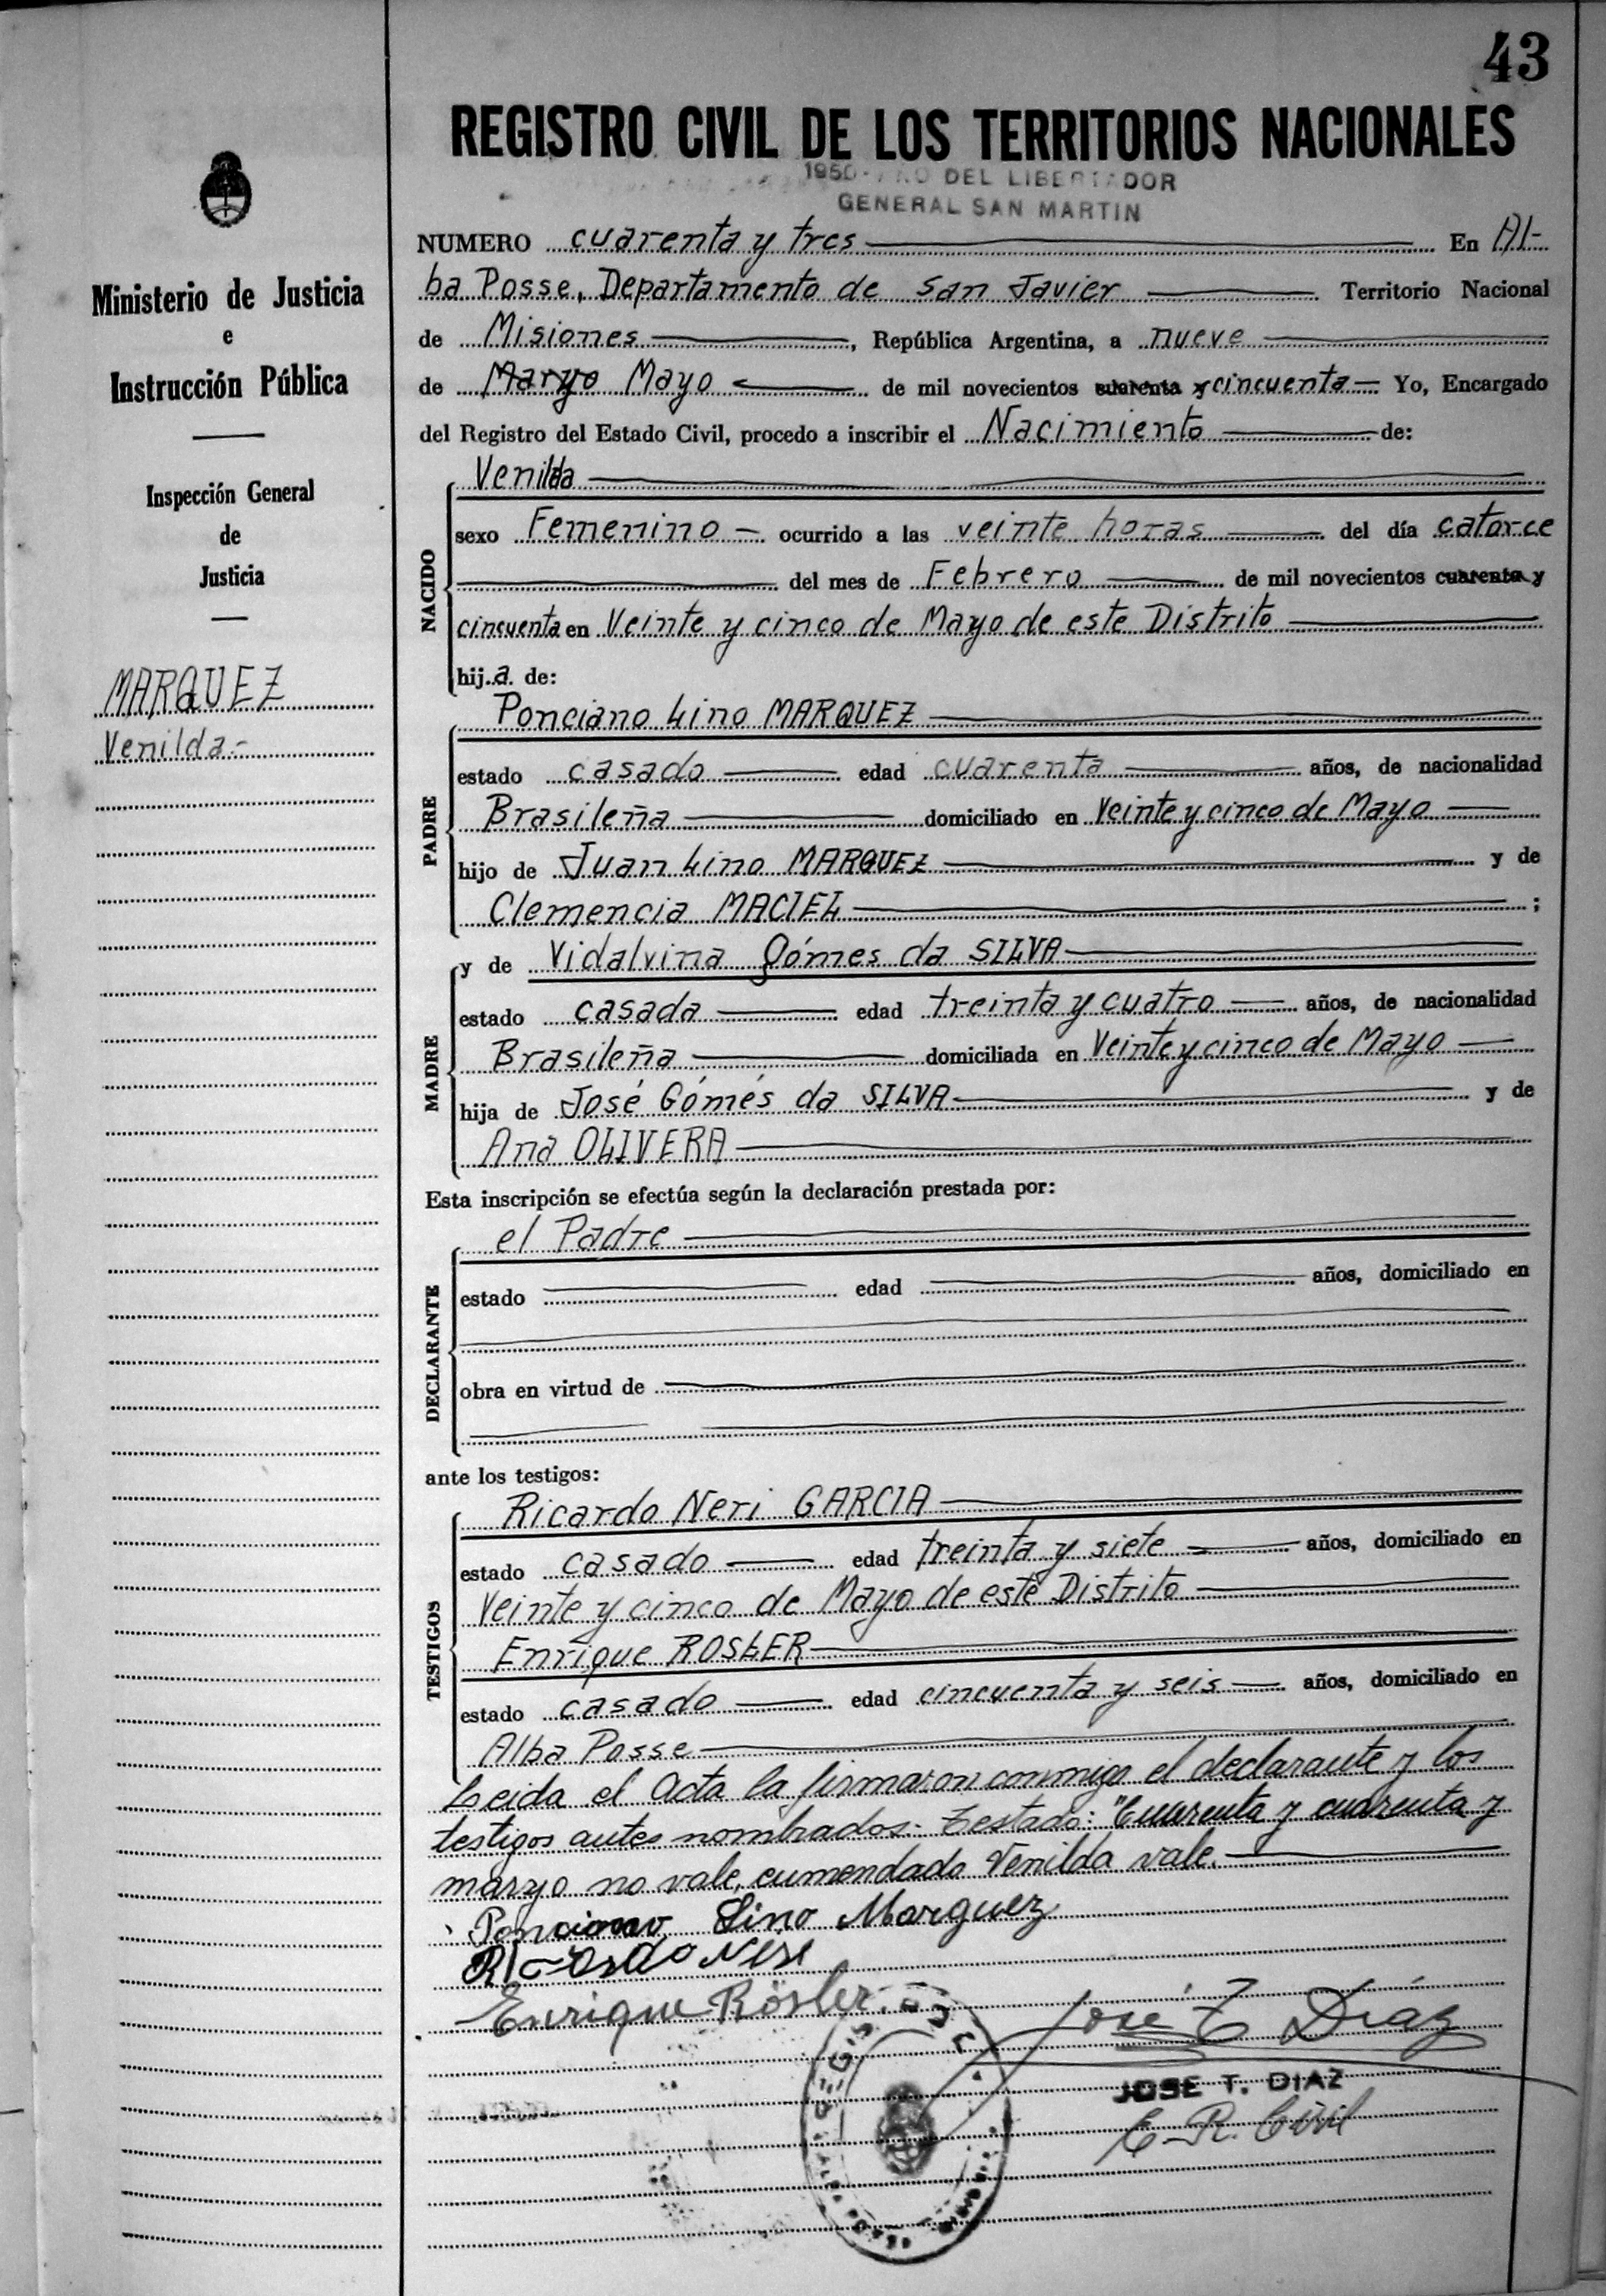 43
REGISTRO CIVIL DE LOS TERRITORIOS NACIONALES
1950 - AÑO DEL LIBERTADOR
GENERAL SAN MARTIN
Ministerio de Justicia
e
Instrucción Pública
Inspección General
de
Justicia
MARQUEZ
Venilda.-
NUMERO cuarenta y tres En Al-
ba Posse, Departamento de San Javier Territorio Nacional
de Misiones, República Argentina, a nueve
de Maryo Mayo de mil novecientos cuarenta y cincuenta Yo, Encargado
del Registro del Estado Civil, procedo a inscribir el Nacimiento de:
NACIDO
Venilda
sexo Femenino ocurrido a las veinte horas del día catorce
del mes de Febrero de mil novecientos cuarenta y
cincuenta en Veinte y cinco de Mayo de este Distrito
hija de:
PADRE
Ponciano Lino MARQUEZ
estado casado edad cuarenta años, de nacionalidad
Brasileña domiciliado en Veinte y cinco de Mayo
hijo de Juan Lino MARQUEZ y de
Clemencia MACIEL;
MADRE
y de Vidalvina Gómes da SILVA
estado casada edad treinta y cuatro años, de nacionalidad
Brasileña domiciliada en Veinte y cinco de Mayo
hija de José Gómés da SILVA y de
Ana OLIVERA
Esta inscripción se efectúa según la declaración prestada por:
DECLARANTE
el Padre
estado edad años, domiciliado en
obra en virtud de
ante los testigos:
TESTIGOS
Ricardo Neri GARCIA
estado casado edad treinta y siete años, domiciliado en
Veinte y cinco de Mayo de este Distrito
Enrique ROSLER
estado casado edad cincuenta y seis años, domiciliado en
Alba Posse
Leida el Acta la firmaron conmigo el declarante y los
testigos antes nombrados.- Testado: "Cuarenta y cuarenta y
maryo no vale, enmendado Venilda vale.
Ponciano Lino Marquez
Ricardo Neri
Enrique Rösler
José T Díaz
JOSE T. DIAZ
E. R. Civil